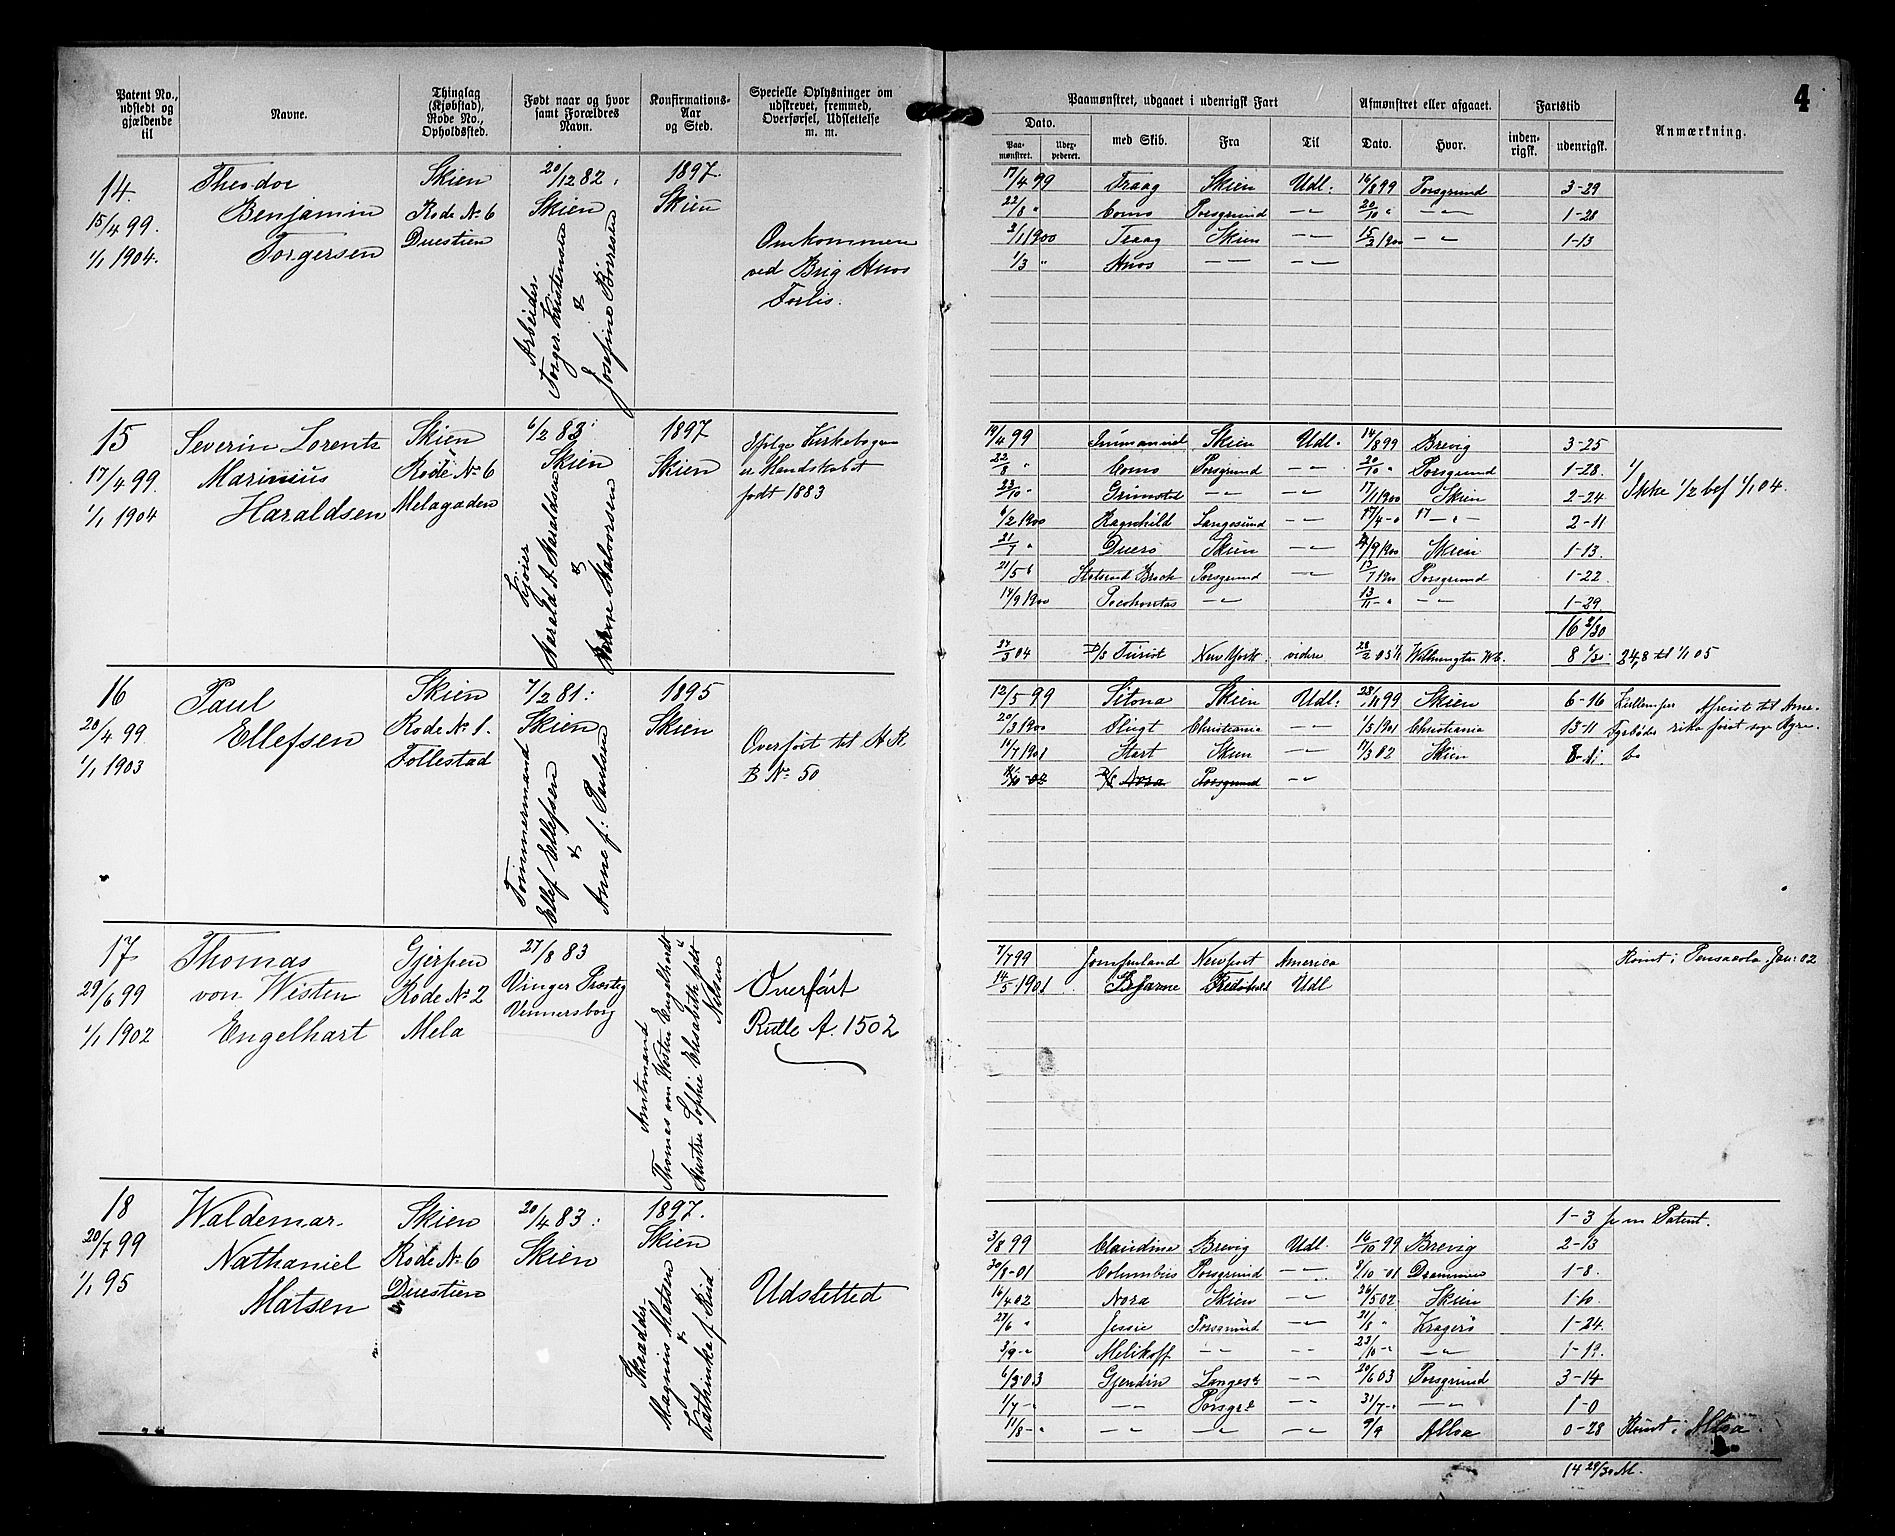 4
Patent No., udstedt og gjældende til
Navne.
Thinglag (Kjøbstad), Rode No., Opholdssted.
Født naar og hvor samt Forældres Navn.
Konfirmations-Aar og Sted.
Specielle Oplysninger om udskrevet, fremmed, Overførsel, Udslettelse m. m.
Paamønstret, udgaaet i udenrigsk Fart
Afmønstret eller afgaaet.
Fartstid
Anmærkning.
Dato.
med Skib.
Fra
Til
Dato.
Hvor.
inden-rigsk.
udenrigsk.
Paa-mønstret.
14.
15/4 99.
1/1 1904.
Theodor
Benjamin
Torgersen
Skien
Rode No 6
Duestien
20/12 82.
Skien
Arbeider
Torger Kristensen
&
Josefine Börresen
1897.
Skien
Omkommen
ved Brig Hnos
Forlis.
17/4 99 Traag Skien Udl. 16/8 99 Porsgrund 3-29
22/8 " Como Porsgrund — 20/10 " — 1-28
2/1 1900 Traag Skien — 15/3 1900 — 1-13
1/3 " Hnos — —
15
17/4 99.
1/1 1904
Severin Lorents
Marinius
Haraldsen
Skien
Rode No 6
Melagaden
6/2 83
Skien
Harald A Haraldsen
&
Halvorsen
1897
Skien
Ifölge Kirkebogen
er Mandskabet
født 1883
19/4 99 Immanuel Skien Udl. 14/8 99 Brevig 3-25
22/8 " Como Porsgrund — 20/10 " Porsgrund 1-28.
23/10 " Grimstad — — 17/1 1900 Skien 2-24
Ikke 1/2 bef 1/1 04.
6/2 1900 Ragnhild Langesund — 17/4 2-11
21/7 " Duerö Skien — 9 1900 Skien 1-13.
21/5 Brock Porsgrund — 13/7 1900 Porsgrund 1-22
14/9 1900 Pocahontas — 13/11 — 1-29.
16
27/3 04 D/S Turist New York. videre 8 24,8 til 1/1 05
16
20/4 99
1/1 1903
Paul
Ellefsen
Skien
Rode No 1.
Follestad
7/2 81.
Skien
Tömmermand
Ellef Ellefsen
&
Anne f: Paulsen
1895
Skien
Overfört til H R
B No 50
12/5 99 Sitona Skien Udl. 99 Skien 6-16
20/3 1900 Sligt Christiania — 1/5 1901 Christiania 13-11
11/7 1901 Start Skien — 11/3 02 Skien 8-1. do
Nora Porsgrund —
17
29/6 99
1/1 1902
Thomas
von Westen
Engelhart
Gjerpen
Rode No 2
Mela
27/8 83
Vinger Prostg
Vinnersborg
Amtmand
Thomas von Westen Engelhardt
Hustru Sophie Elisabeth født
Nelson
Overført
Rulle A. 1502
7/7 99 Jomfruland Newport America
Römt i Pensacola Jan: 02
14/5 1901 Bjarne Fredrhald Udl
18
20/7 99
1/1 95
Waldemar
Nathaniel
Matsen
Skien
Rode No 6
Duestien
20/4 83
Skien
Skrædder
Magnus Matsen
&
Kathinka f. Skid
1897.
Skien
Udslettet
1-3 Patent.
3/8 99 Claudine Brevig Udl. 16/10 99 Brevig 2-13
30/8-01 Columbus Porsgrund — 9/10-01 Drammen 1-8.
16/4 02 Nora Skien — 26/5 02 Skien 1-10.
27/6 " Jessie Porsgrund — 21/8 " Kragerö 1-24.
3/9 " Melikoff — — 23/10 " — 1-19.
6/3 03 Gjendin Langesd — 20/6 03 Porsgrund 3-14
1/7 — Porsgrd — 31/7 — 1-0
11/8 — — — 9/9 Alloa 0-28 Römt i Alloa.
14 29/30 M.